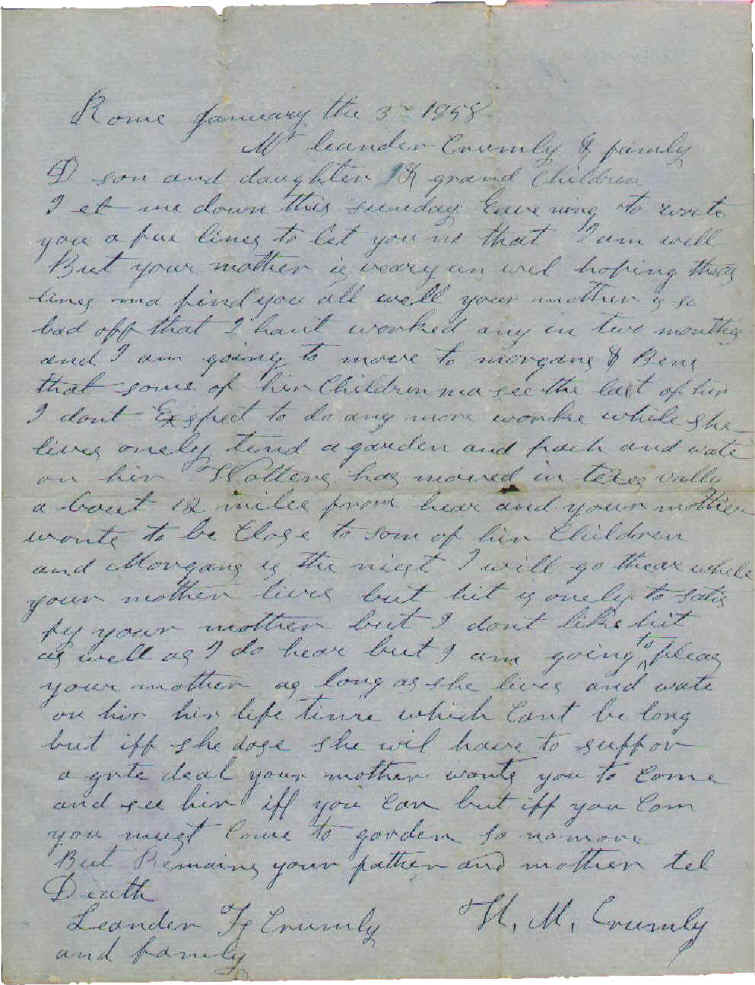 Rome January the 3 1858
Mr leander Crumly & family
D son and daughter & grand Children
I set me down this sunday Eavening to write
you a fue lines to let you no that I am well
But your mother is veary un wel hoping theas
lines ma find you all well your mother is so
bad off that I haint worked any in two months
and I am going to move to morgans & Bens
that some of hir Children ma see the last of hir
I dont Exspect to do any more worke while she
lives onely tend a garden and and wate
on hir has moved in texas vally
a bout 12 miles from hear and your mother
wonts to be Close to som of hir Children
and Morgans is the niest I will go thear while
your mother lives but hit is onely to satis
fy your mother but I dont like hit
as well as I do hear but I am going to pleas
your mother as long as she lives and wate
on hir hir life time which Cant be long
but iff she dose she wil have to suffor
a grte deal your mother wonts you to Come
and see hir iff you Can but iff you Com
you must Come to gorden so no more
But Remains your father and mother tel
Death
Leander Crumly H. M. Crumly
and family